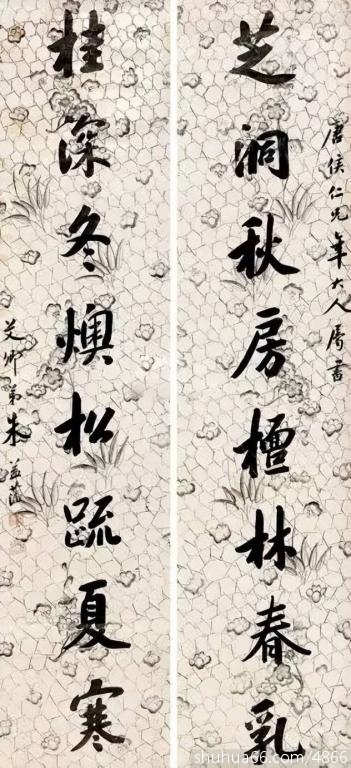 唐侯仁兄年大人屬書
芝洞秋房檀林春乳
桂深冬燠松疏夏寒
艾卿弟朱益藩
shuhua66.com/4866